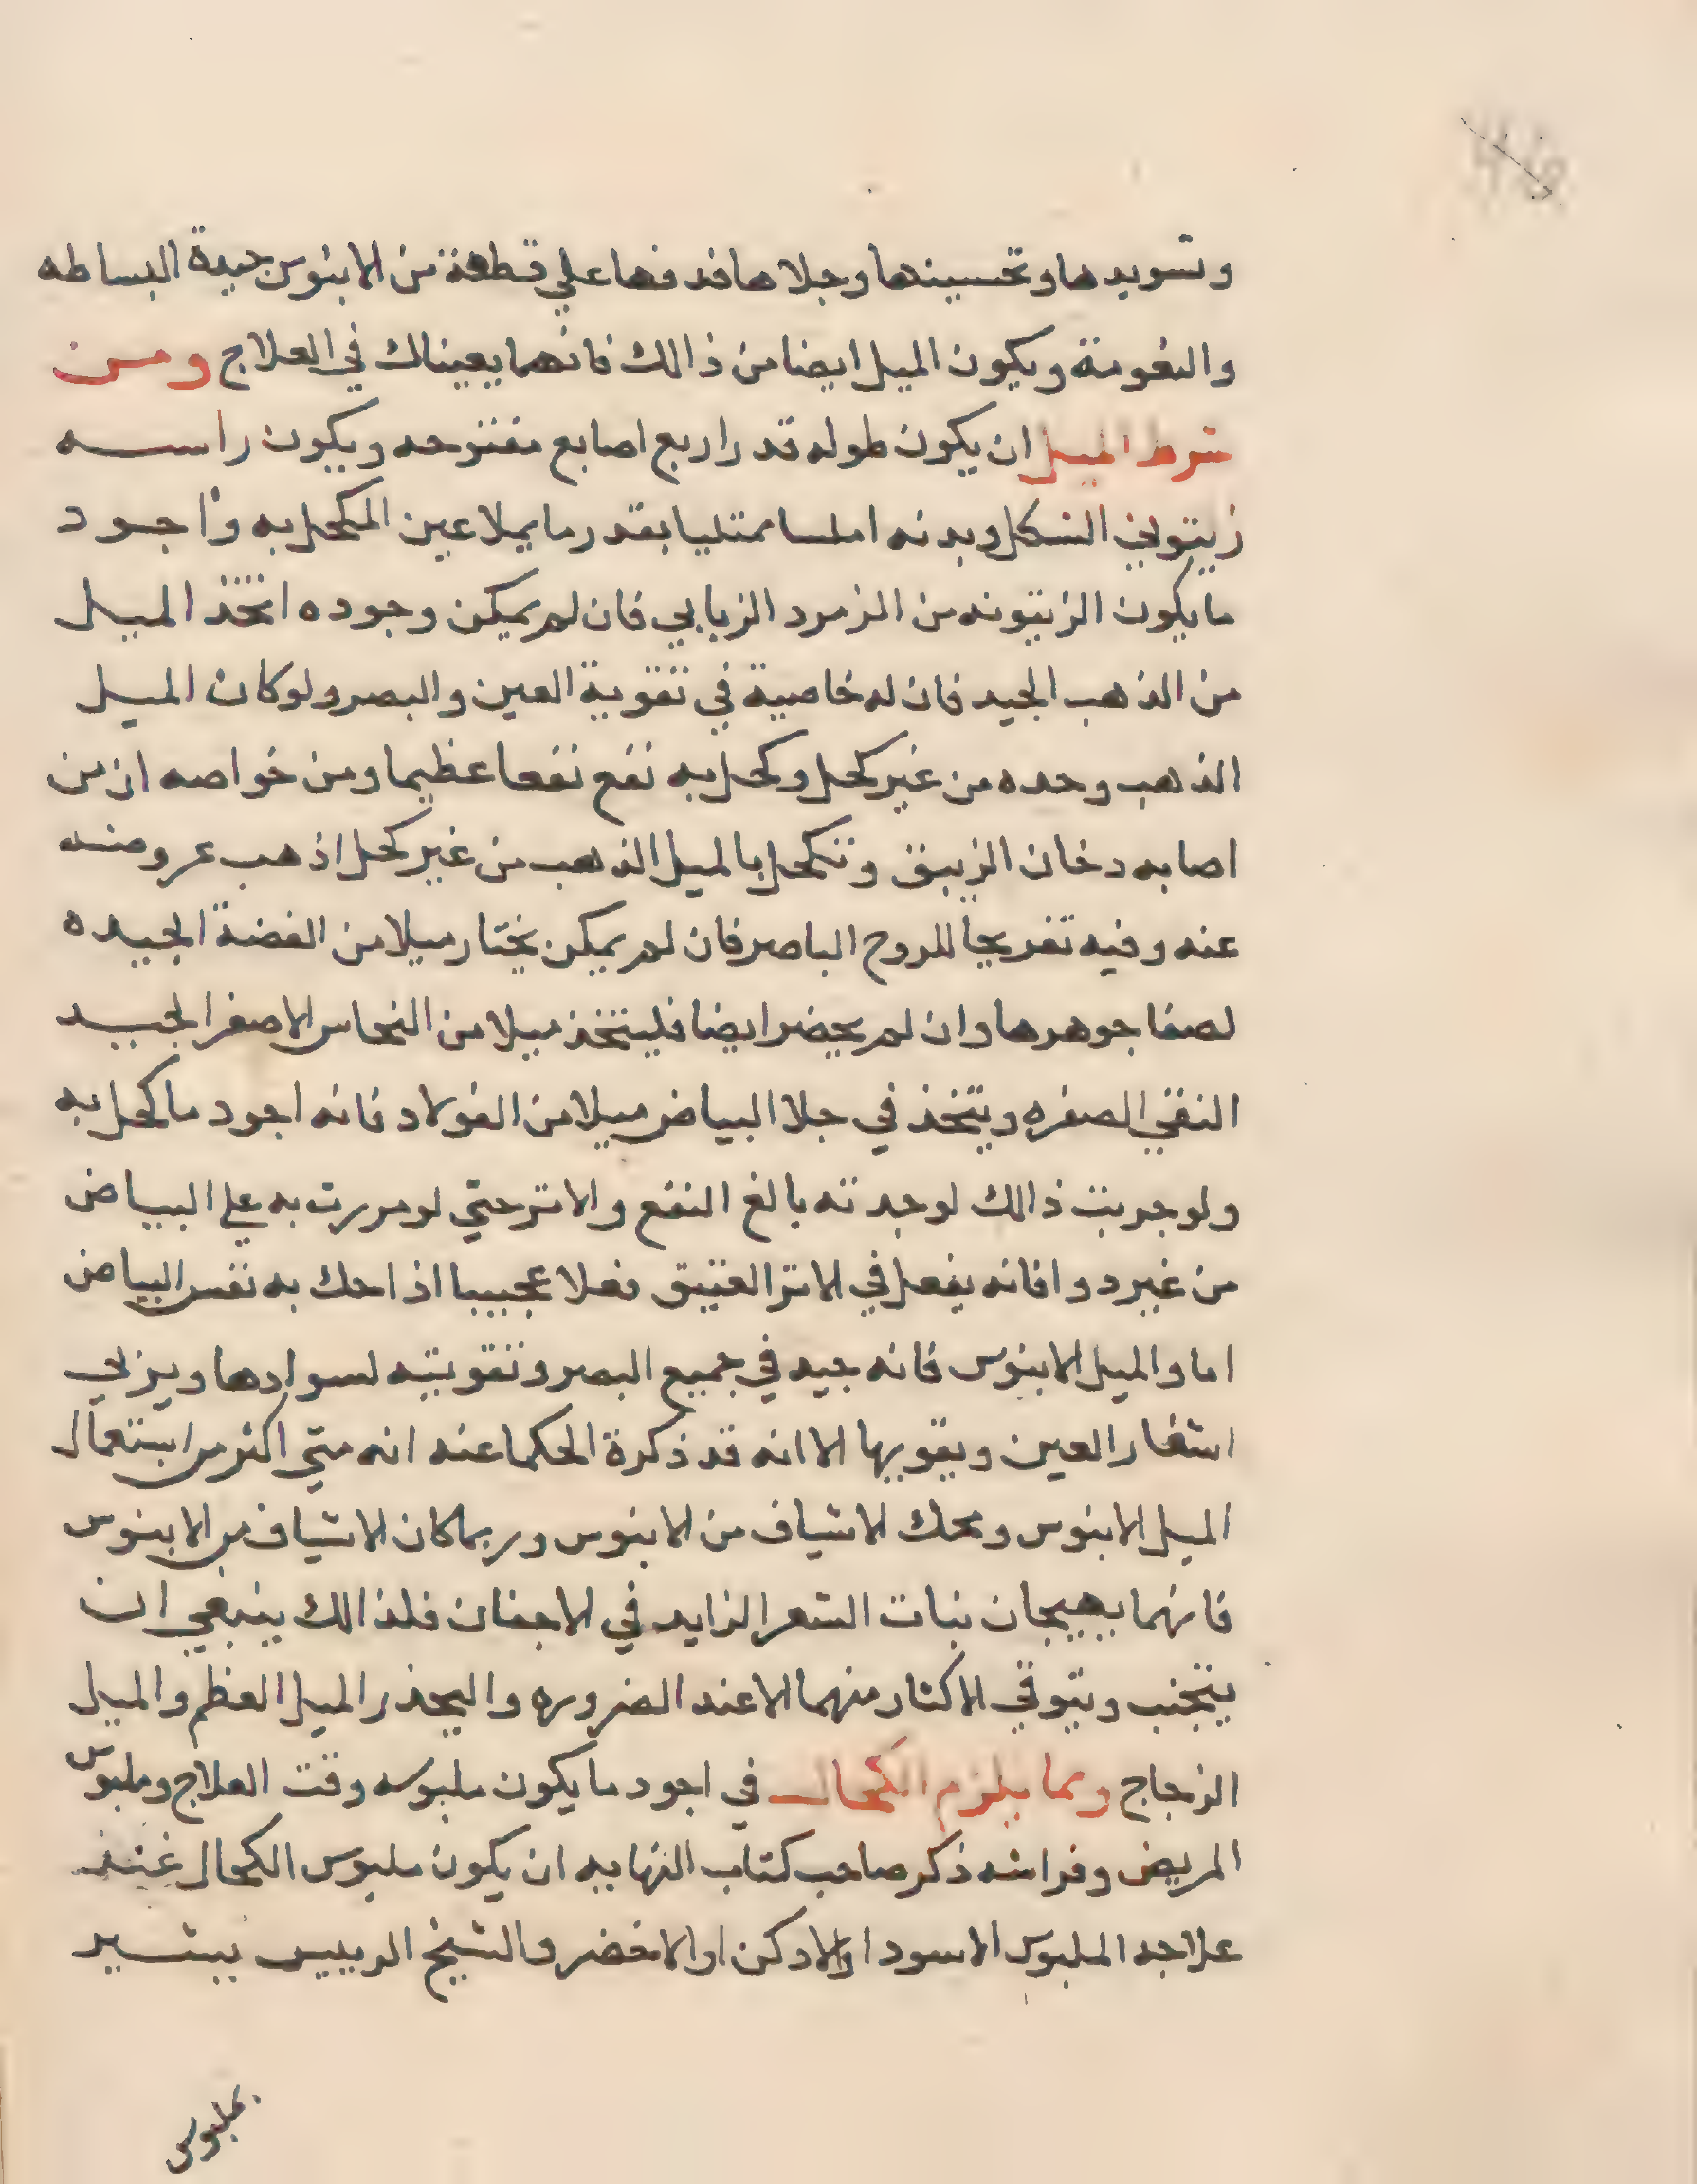 وتسويدها وتحسينها وجلاها فدفها علي قطعة من الابنوس جيدة البساطه
والنعومة ويكون الميل ايضا من ذالك فانهما يعيناك في العلاج ومن
شرط الميل ان يكون طوله قدر اربع اصابع مفتوحه ويكون راسه
زيتوني الشكل وبدنه املسا ممتليا بقدر ما يملا عين المكحل به واجود
ما يكون الزيتونه من الزمرد الزبابي فان لم يمكن وجوده اتخذ الميل
من الذهب الجيد فان له خاصية في تقوية العين والبصر ولو كان الميل
الذهب وحده من غير كحل وكحل به نفع نفعا عظيما ومن خواصه ان من
اصابه دخان الزيبق وتكحل بالميل الذهب من غير كحل اذهب عروضه
عنه وفيه تفريجا للروح الباصر فان لم يمكن يختار ميلا من الفضة الجيده
لصفا جوهرها وان لم يحضر ايضا فليتخذ ميلا من النحاس الاصفر الجيد
النقي الصفره ويتخذ في جلا البياض ميلا من الفولاد فانه اجود ما كحل به
ولو جربت ذالك لوجدته بالغ النفع والاثر حتي لو مررت به علي البياض
من غير دوا فانه يفعل في الاثر العتيق فعلا عجيبا اذا حك به نفس البياض
اما والميل الابنوس فانه جيد في جميع البصر وتقويته لسوادها ويزلي
اشفار العين ويقويها الا انه قد ذكرة الحكما عنه انه متي اكثر من استعمال
الميل الابنوس ومحك الاشياف من الابنوس وربما كان الاشياف من الابنوس
فانهما يهيجان نبات الشعر الزايد في الاجفان فلذالك ينبغي ان
يتجنب ويتوقي الاكثار منهما الا عند الضروره واليحذر الميل العظم والميل
الزجاج ومما يلزم الكحال في اجود ما يكون ملبوسه وقت العلاج وملبوس
المريض وفراشه ذكر صاحب كتاب النهايه ان يكون ملبوس الكحال عند
علاجه الملبوس الاسود او الادكن او الاخضر والشيخ الرييس يشير
بملبوس